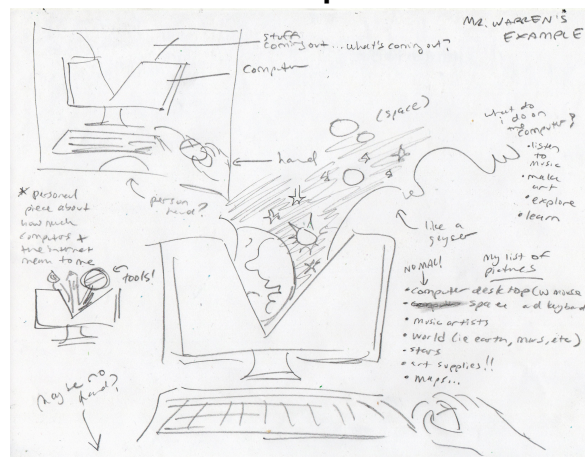 MR. WARREN'S
EXAMPLE
stuff
coming out... what's coming out?
computer
(space)
what do
i do on
my
computer?
• listen
to
music
• make
art
• explore
• learn
hand
person
head?
* personal
piece about
how much
computers +
the internet
mean to me
tools!
like a
geyser
my list of
pictures
NORMAL!
• computer desktop (w mouse
and keyboard
• space
• music artists
• world (ie earth, mars, etc)
• stars
• art supplies!!
• maps...
maybe no
hand?